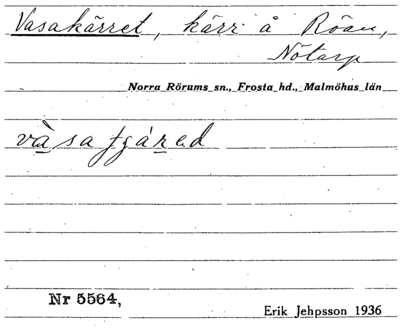 Vasakärret, kärr å Röan,
Nötarp
Norra Rörums sn., Frosta hd., Malmöhus län
Nr 5564,
Erik Jehpsson 1936